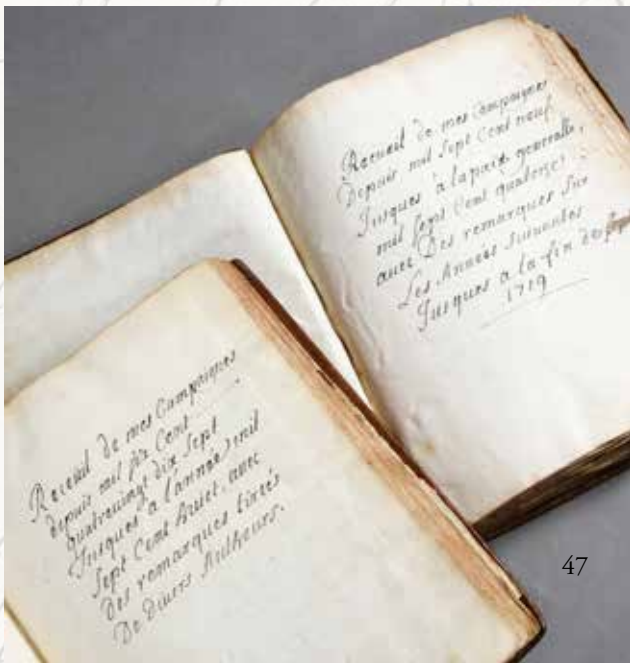 Recueil de mes Campagnes
Depuis mil Sept Cent neuf
Jusques a la paix generalle,
mil Sept Cent quatorze
avec Des remarques Sur
Les Années Suivantes
Jusques a la fin de
1719
Recueil de mes Campagnes
depuis mil six Cent
quatrevingt dix Sept
Jusques a l'année mil
Sept Cent huict, avec
Des remarques tirées
De Divers Autheurs.
47